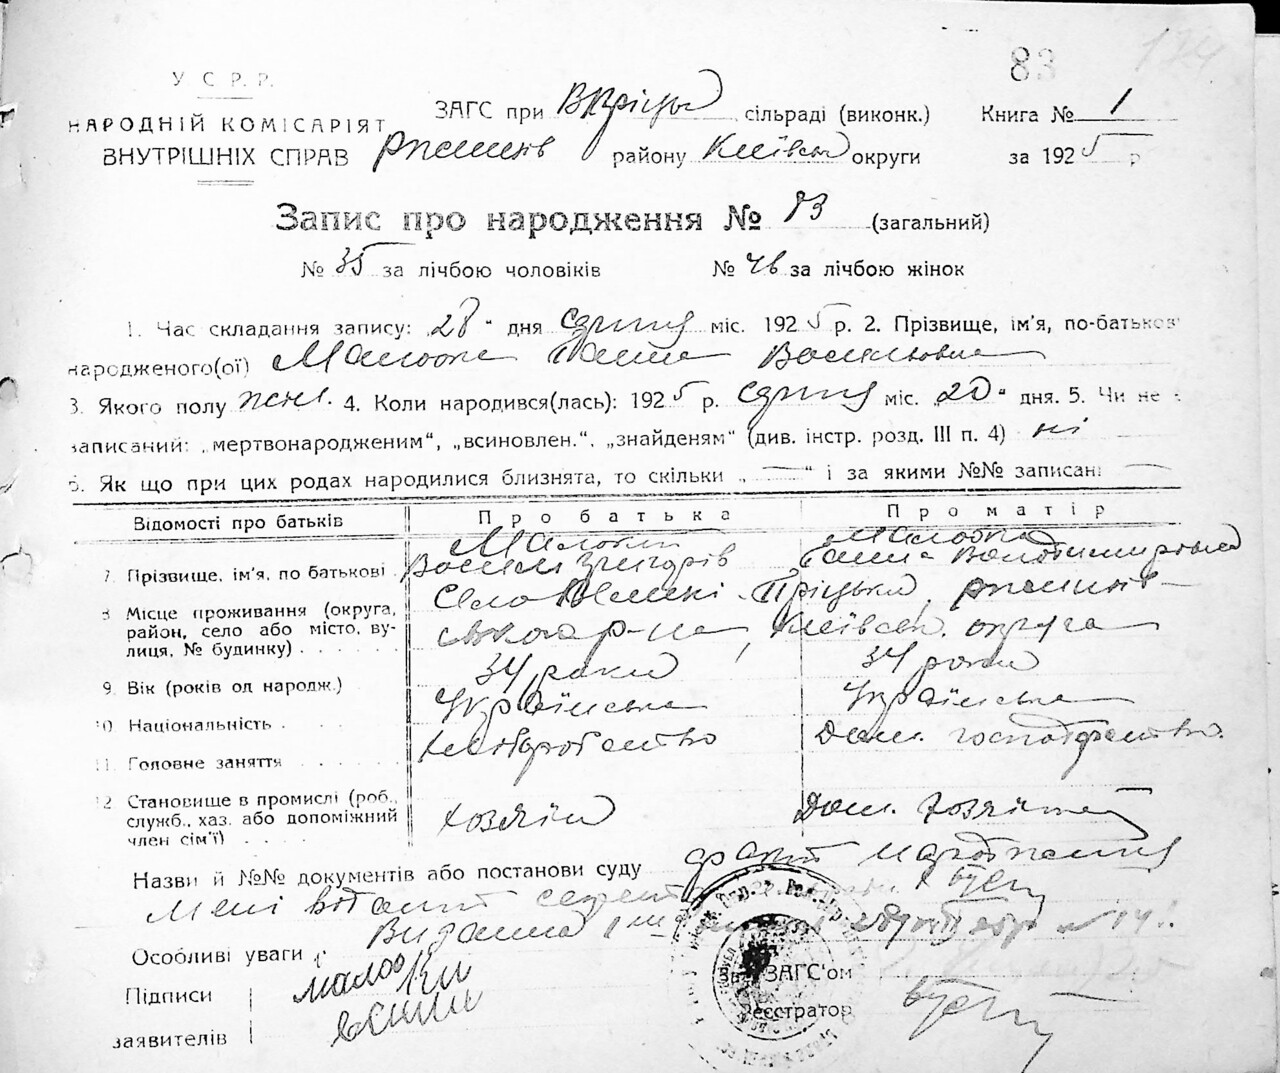 83
174
У С Р. Р.
НАРОДНІЙ КОМІСАРІЯТ
ВНУТРІШНІХ СПРАВ
ЗАГС при В Пріцьк сільраді (виконк.) Книга № 1
Ржищів району Київськ округи за 1925 р
Запис про народження № 83 (загальний)
№ 35 за лічбою чоловіків № 48 за лічбою жінок
1. Час складання запису: 28 " дня серпня міс. 1925 р. 2. Прізвище, ім'я, по-батьков
народженого(ої) Ганна Васильовна
3. Якого полу жін. 4. Коли народився(лась): 1925 р. серпня міс. „20" дня. 5. Чи не
записаний: „мертвонародженим", „всиновлен.", „знайденям" (див. інстр. розд. III п. 4) ні
6. Як що при цих родах народилися близнята, то скільки „ — " і за якими №№ записані —
Відомості про батьків Про батька Про матір
7. Прізвище, ім'я, по батькові Василь Григорів Ганна Володимировна
8 Місце проживання (округа, район, село або місто, ву-лиця, № будинку) Село Великі Пріцьки, Ржищів-
ського р-на, Київськ. округа
9. Вік (років од народж.) 34 роки 34 роки
10 Національність Українська Українська
11. Головне заняття хліборобство Дом. господарство.
12 Становище в промислі (роб.,
служб., хаз. або допоміжний
член сім'ї) хозяїн Дом. хозяйка
Назви й №№ документів або постанови суду факт народження
мені
Особливі уваги Видана
Підписи
заявителів
Зав. ЗАГС'ом
Реєстратор